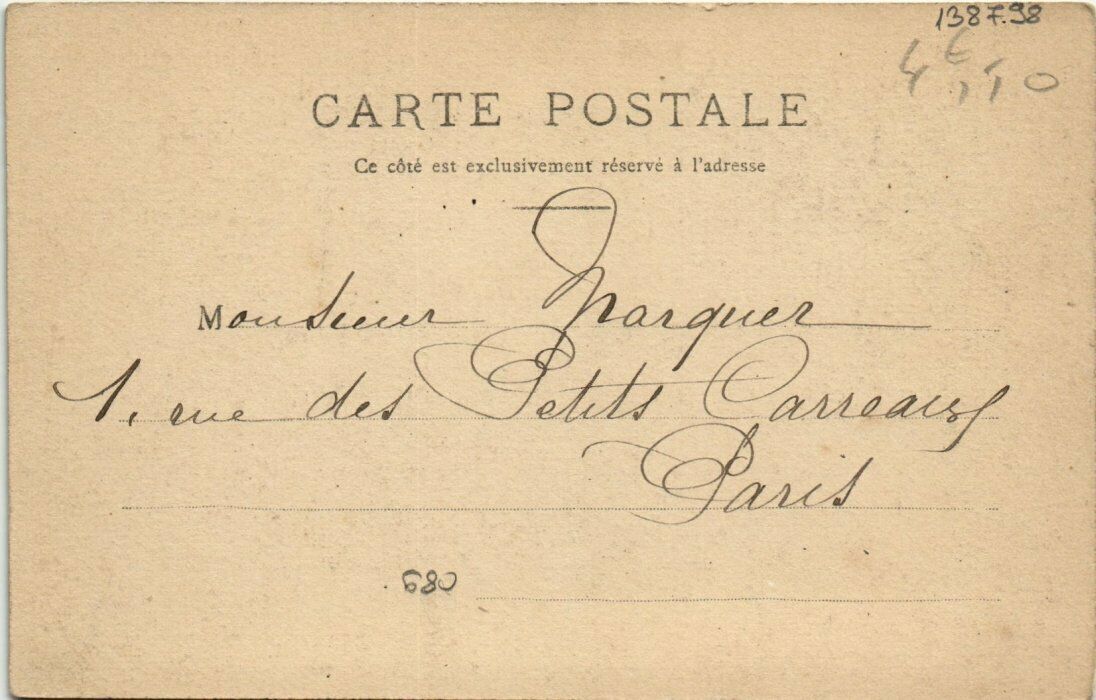 138798
CARTE POSTALE
Ce côté est exclusivement réservé à l'adresse
Monsieur Marquer
1. rue des Petits Carreaux
Paris
680